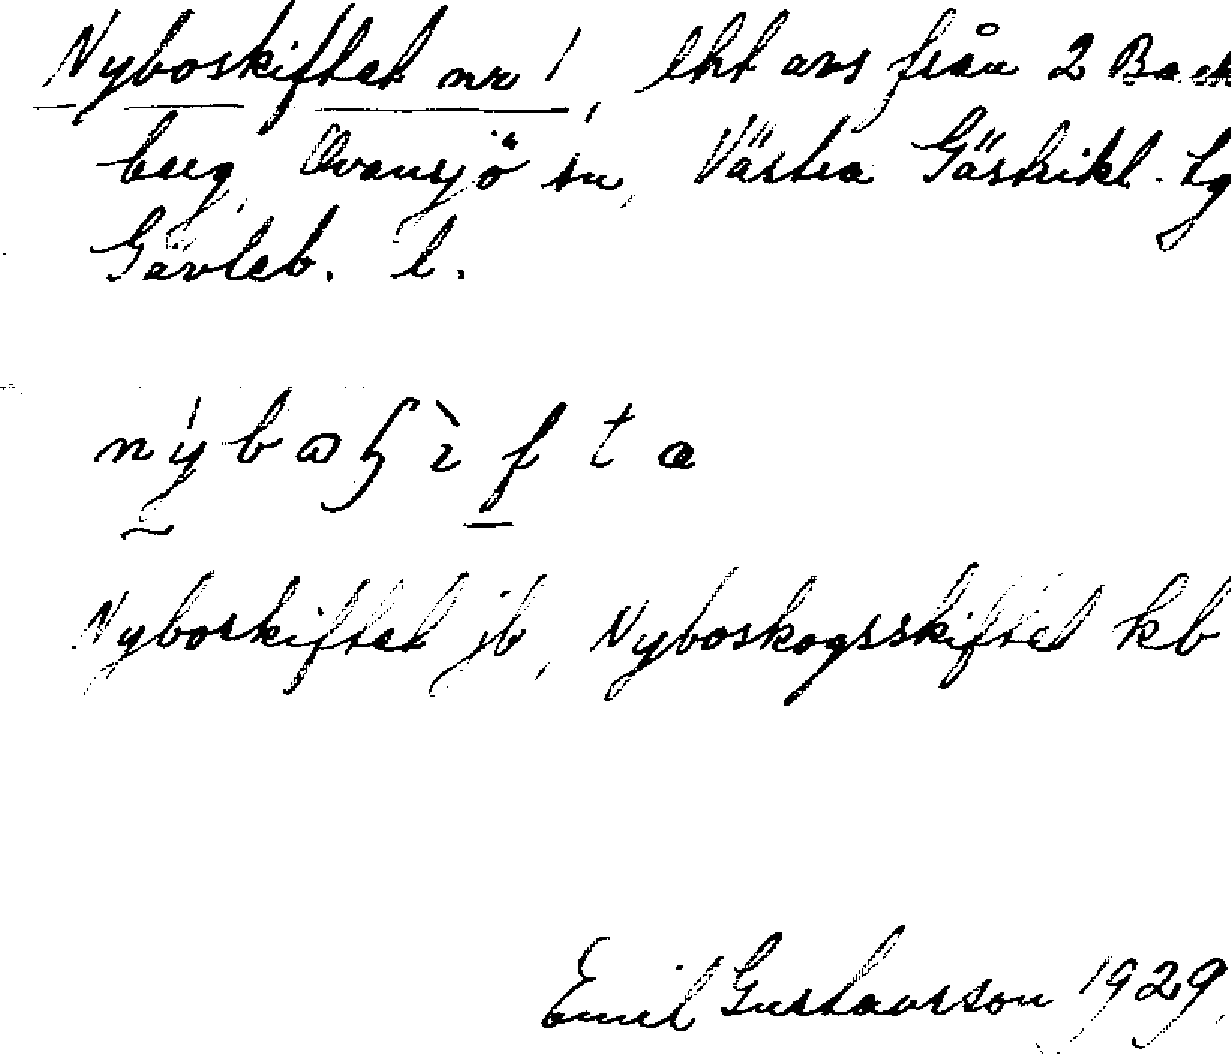 Nyboskiftet nr 1, lht avs från 2 Back
berg, Ovansjö sn, Västra Gästrikl. tg
Gävleb. l.
Nyboskiftet jb, Nyboskogsskiftet kb
Emil Gustavsson 1929.